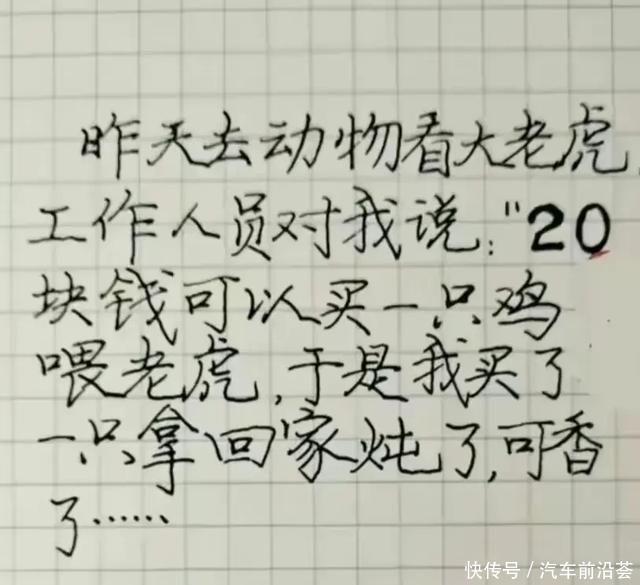 昨天去动物看大老虎,
工作人员对我说:"20
块钱可以买一只鸡
喂老虎,于是我买了
一只拿回家炖了,可香
了……
快传号/汽车前沿荟